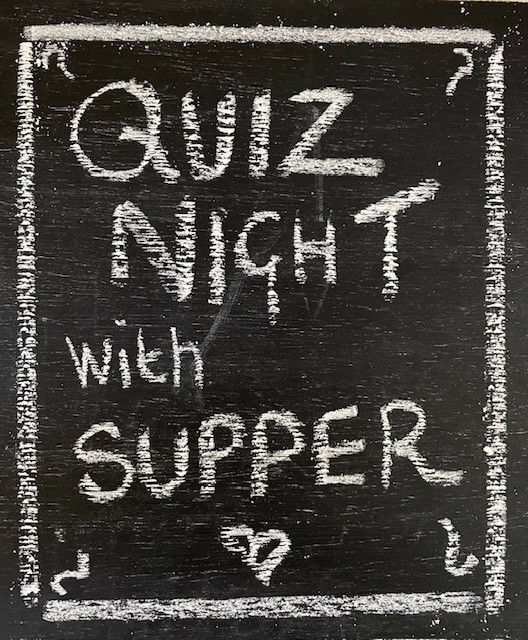 QUIZ
NIGHT
with
SUPPER